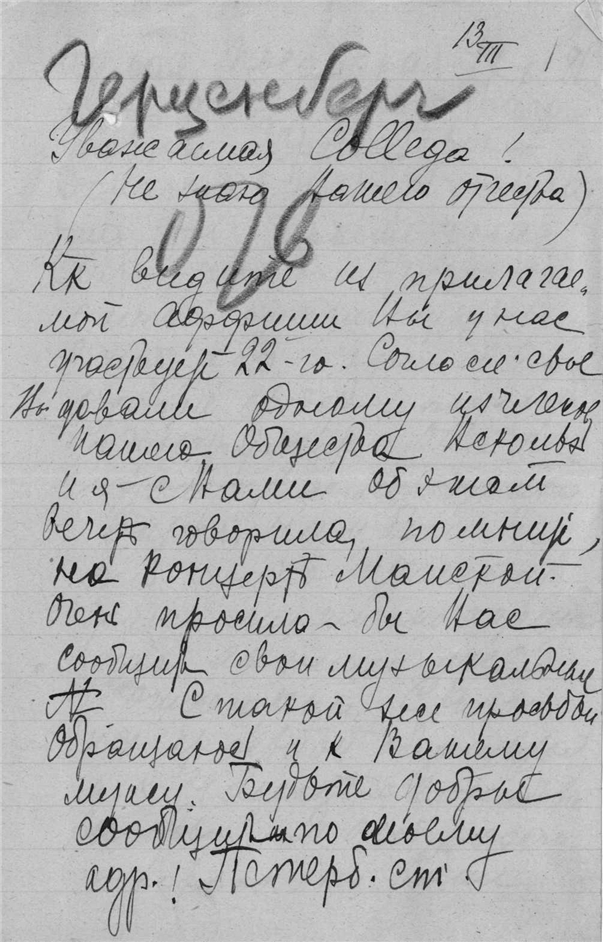 13/III
Герценберг
Уважаемая Collega!
(Не знаю Вашего отчества)
Как видите из прилагае-
мой аффиши Вы у нас
участвуете 22-го. Согласие свое
Вы давали одному из членов
нашего Общества
и я с Вами об этом
вечере говорила, помните,
на концерте Майской.
Очень просила-бы Вас
сообщить свои музыкальные
№ С такой же просьбой
обращаюсь и к Вашему
мужу. Будьте добры
сообщить по моему
адр.! Петерб. ст.